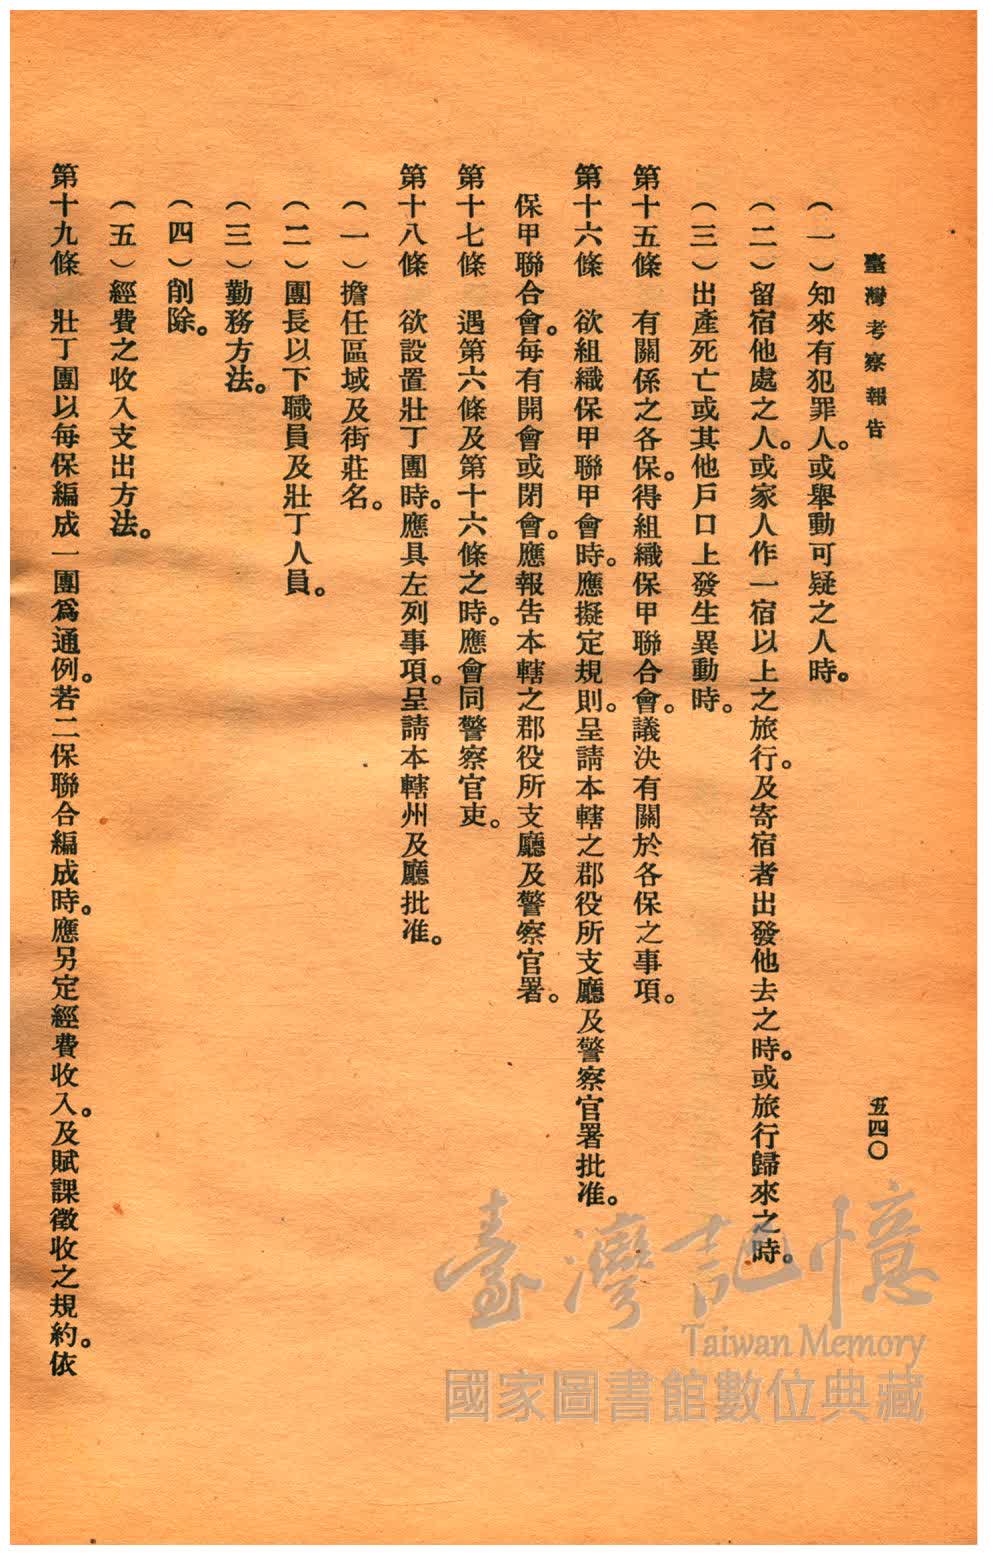 臺灣考察報告
五四〇
(一)知來有犯罪人。或舉動可疑之人時。
(二)留宿他處之人。或家人作一宿以上之旅行。及寄宿者出發他去之時。或旅行歸來之時。
(三)出產死亡或其他戶口上發生異動時。
第十五條　有關係之各保。得組織保甲聯合會。議決有關於各保之事項。
第十六條　欲組織保甲聯甲會時。應擬定規則。呈請本轄之郡役所支廳及警察官署批准。
保甲聯合會。每有開會或閉會。應報告本轄之郡役所支廳及警察官署。
第十七條　遇第六條及第十六條之時。應會同警察官吏。
第十八條　欲設置壯丁團時。應具左列事項。呈請本轄州及廳批准。
(一)擔任區域及街莊名。
(二)團長以下職員及壯丁人員。
(三)勤務方法。
(四)削除。
(五)經費之收入支出方法。
第十九條　壯丁團以每保編成一團爲通例。若二保聯合編成時。應另定經費收入。及賦課徵收之規約。依
臺灣記憶
Taiwan Memory
國家圖書館數位典藏